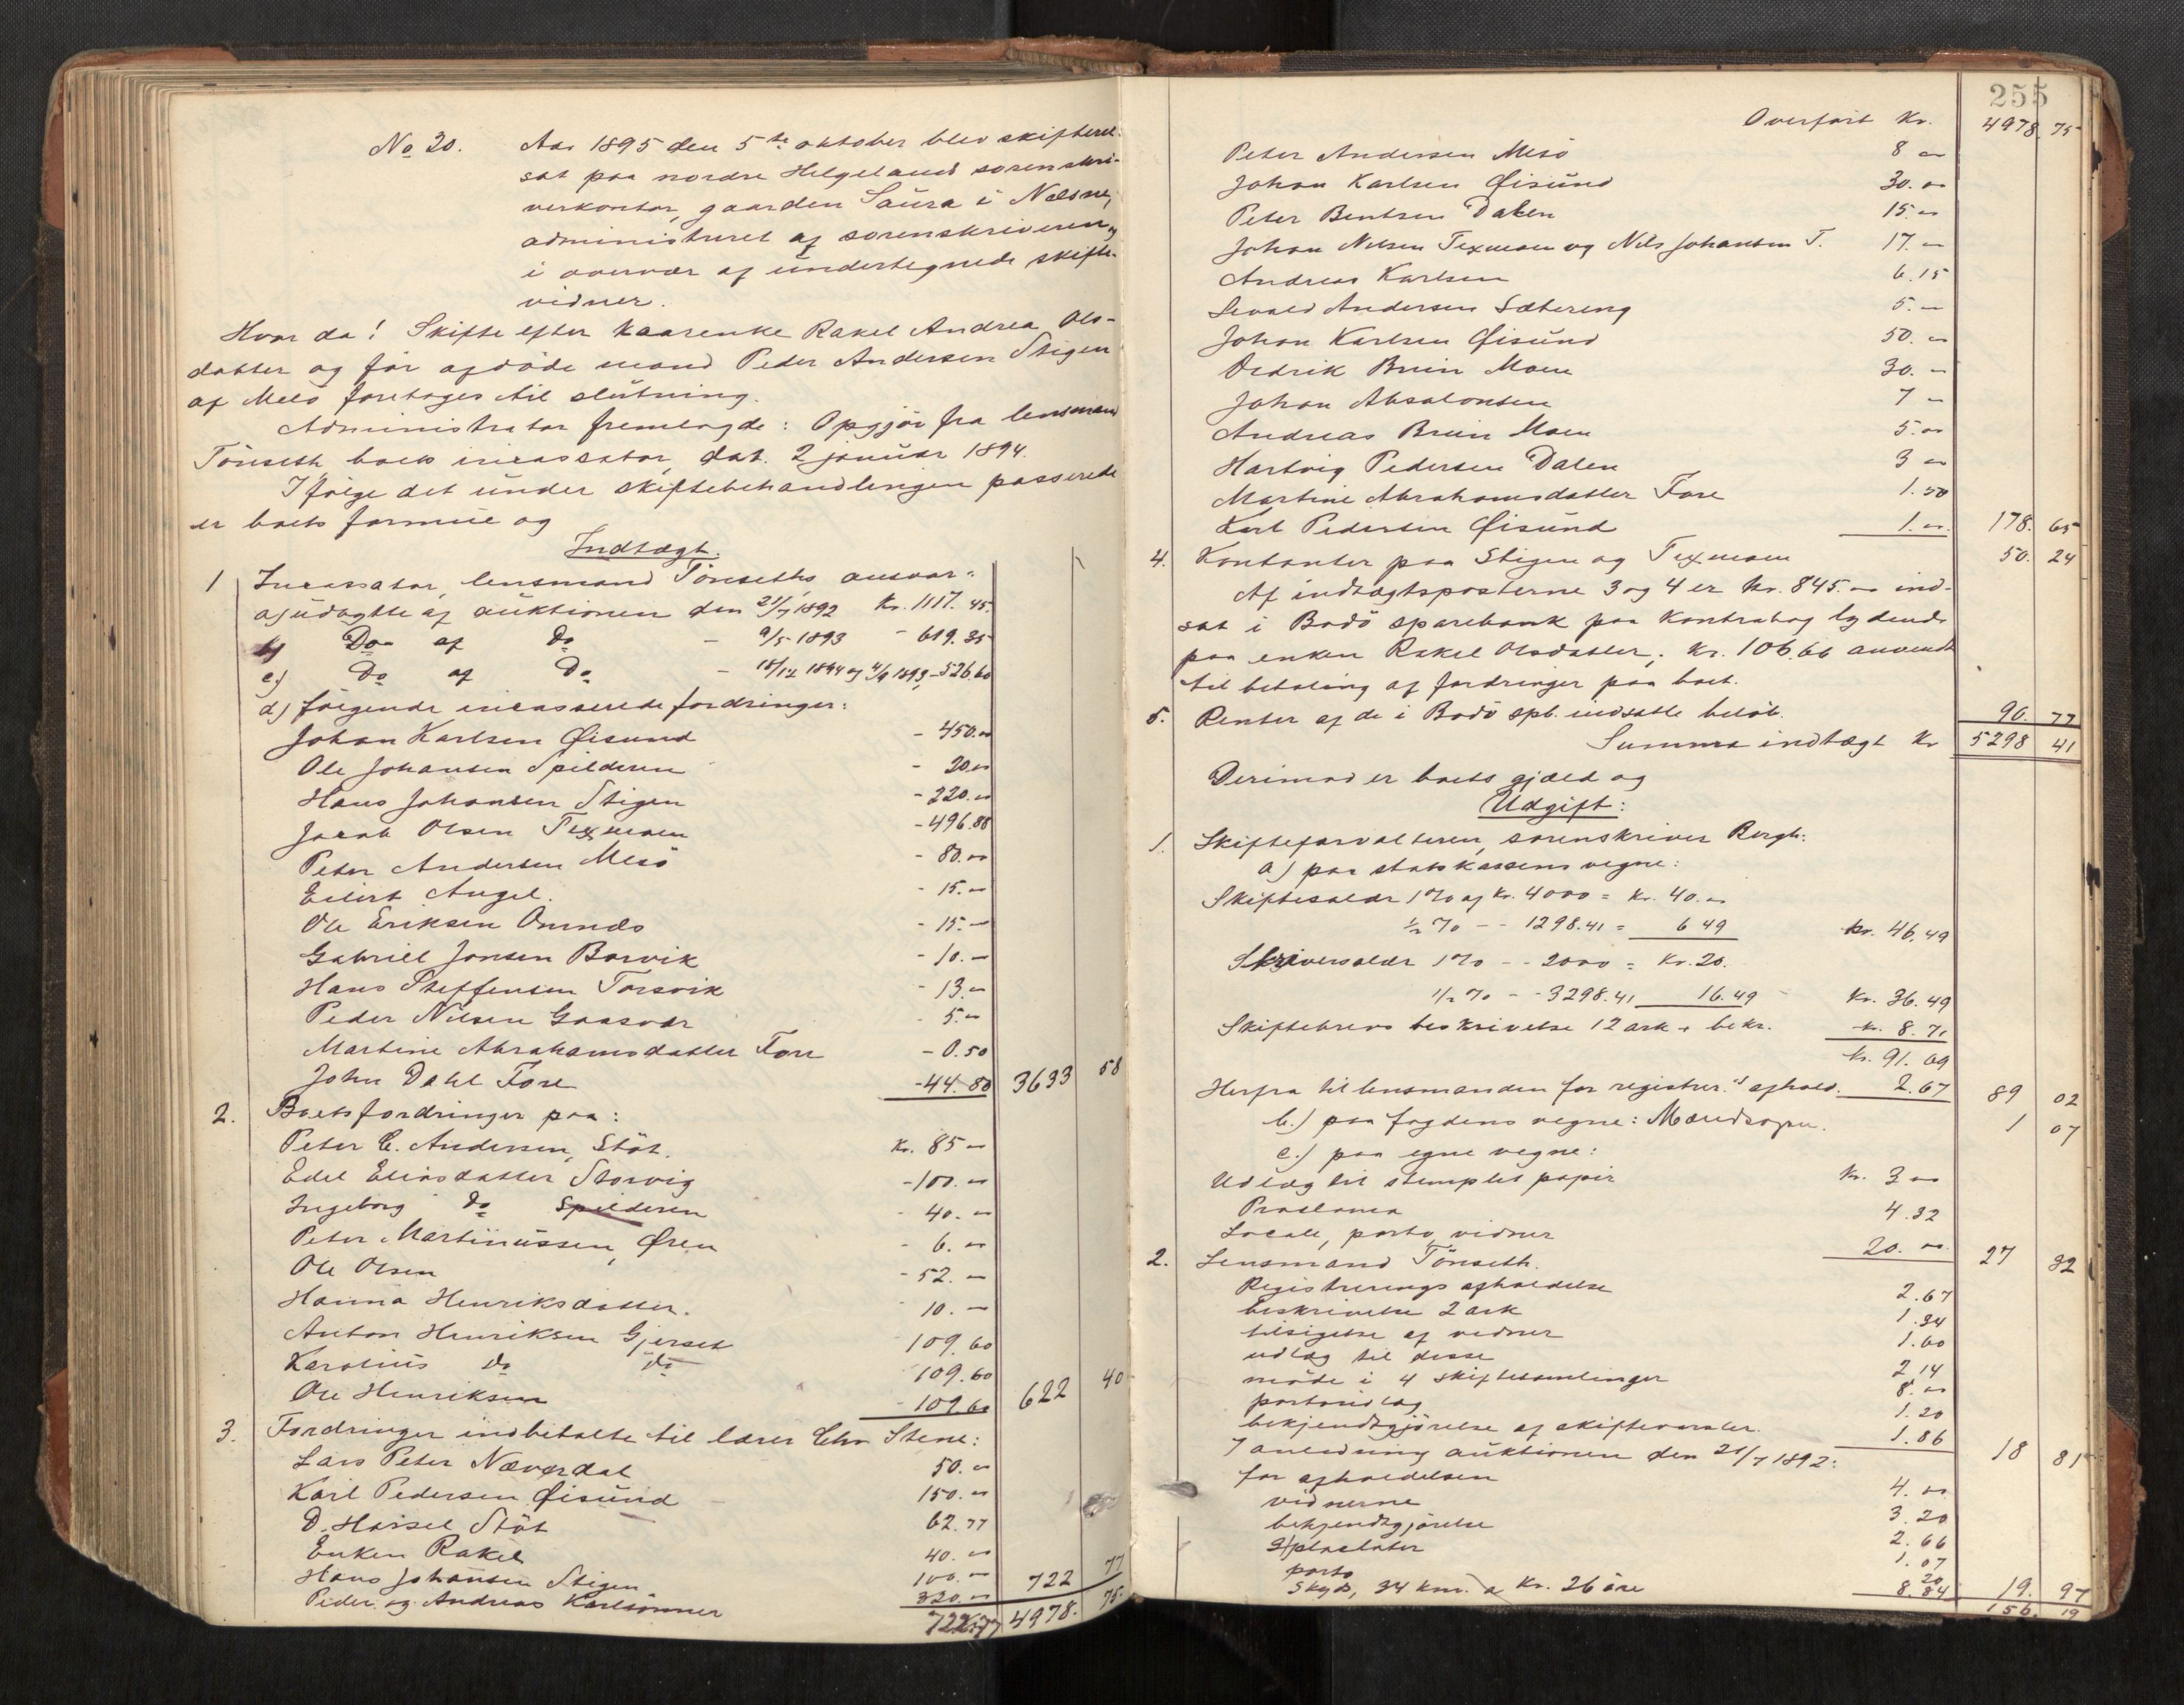 No 20. Aar 1895 den 5te oktober blev skifteret
sat paa nordre Helgeland sorenskri-
verkontor, gaarden Saura i Næsne,
administreret af sorenskriveren
i overvær af undertegnede skifte-
vidner.
Hvor da! Skifte efter kaarenke Rakel Andrea Ols-
datter og før afdøde mand Peder Andersen Stigen
af Melø foretages til slutning.
Administrator fremlagde: Opgjør fra lensmand
Tönseth, boets incassator, dat. 2 januar 1894.
I følge det under skiftebehandlingen passerede
er boets formue og
Indtægt:
1 Incassator, lensmand Tönseths, ansvar:
a) udbytte af auktionen den 21/7 1892 Kr. 1117.45
b) Do af Do - 9/5 1893 - 619.35
c) Do af Do - 18/12 1894 og 4/9 1893 - 526.60
d) følgende incasserede fordringer:
Johan Karlsen Øisund - 450.00
Ole Johansen Spilderen - 20.00
Hans Johansen Stigen - 220.00
Jacob Olsen Texmoen - 496.88
Peter Andersen Mesö - 80.00
Eilert Angel. - 15.-
Ole Eriksen Ønnes - 15.-
Gabriell Jonsen Borvik - 10.-
Hans Steffensen Torsvik - 13.-
Peder Nilsen Gaasvær - 5.-
Martine Abrahamsdatter Fore - 0.50
John Dahl Fore - 44.80 3633 58
2. Boets fordringer paa:
Peter C. Andersen, Støt. Kr. 85 -
Edel Eliasdatter Storvig - 100.-
Ingeborg Do Spilderen - 40.-
Peter Martinussen, Øren - 6.-
Ole Olsen - 52.-
Hanna Henriksdatter. - 10.-
Anton Henriksen Gjerset 109.60
Karolius Do Do 109.60
Ole Henriksen - 109.60 622 40
3. Fordringer indbetalte til lærer Chr Stene:
Lars Peter Næverdal 50.-
Karl Pedersen Øisund 150.-
D. Hassel Støt 62.77
Enken Rakel 40.-
Hans Johansen Stigen 100.-
Peder og Andreas Karlsønner 320.- 722 77
722.77 4978. 75
255
Overført Kr. 4978. 75
Peter Andersen Mesö 8 -
Johan Karlsen Øisund 30.-
Peter Bentsen Dalen 15.-
Johan Nilsen Texmoen og Nils Johansen T. 17.-
Andreas Karlsen 6.15
Sevald Andersen Sætereng 5.-
Johan Karlsen Øisund 50.-
Dedrik Bruun Moen 30.-
Johan Absalonsen 7 -
Andreas Bruun Moen 5.-
Hartvig Pedersen Dalen 3 -
Martine Abrahamsdatter Fore 1.50
Karl Pedersen Øisund 1.- 178. 65
4. Kontanter paa Stigen og Texmoen 50. 24
Af indtægtsposterne 3 og 4 er Kr. 845.- ind-
sat i Bodö sparebank paa Kontrabog lydende
paa enken Rakel Olsdatter, kr. 106.66 anvendt
til betaling af fordringer paa boet.
5. Renter af de i Bodö spb. indsatte beløb. 90. 77
Summa indtægt Kr 5298 41
Derimod er boets gjæld og
Udgift:
1. Skifteforvalteren, sorenskriver Bergh:
a) paa statskassens vegne:
Skiftesalær 1% af Kr. 4000 = Kr. 40.-
1/2 % - - 1298.41 = 6 49 Kr. 46.49
Skriversalær 1% - - 2000 = Kr. 20.
1/2 % - - 3298.41 16.49 Kr. 36.49
Skiftebrevs beskrivelse 12 ark + bekr. kr. 8.71
Kr. 91.69
Herfra til lensmanden for registrer.s afhold. 2.67 89 02
b.) paa fogdens vegne: 1 07
c.) paa egne vegne:
Udlæg til stemplet papir Kr. 3 -
Proclama 4.32
Locale, porto, vidner 20.- 27 32
2. Lensmand Tönseth.
Registrerings afholdelse 2.67
beskrivelse 2 ark 1.34
tilsigelse af vidner 1.60
udlæg til disse 2 14
møde i 4 skiftesamlinger 8.-
portoudlæg 1.20
bekjendtgjørelse af skiftevarsler. 1.86 18 81
I anledning auktionen den 21/7 1892:
for afholdelsen 4.-
vidnerne 3.20
bekjendtgjørelse 2.66
plackater 1.07
porto 20
Skyds, 34 km. a Kr. 26 øre 8.84 19. 97
156. 19